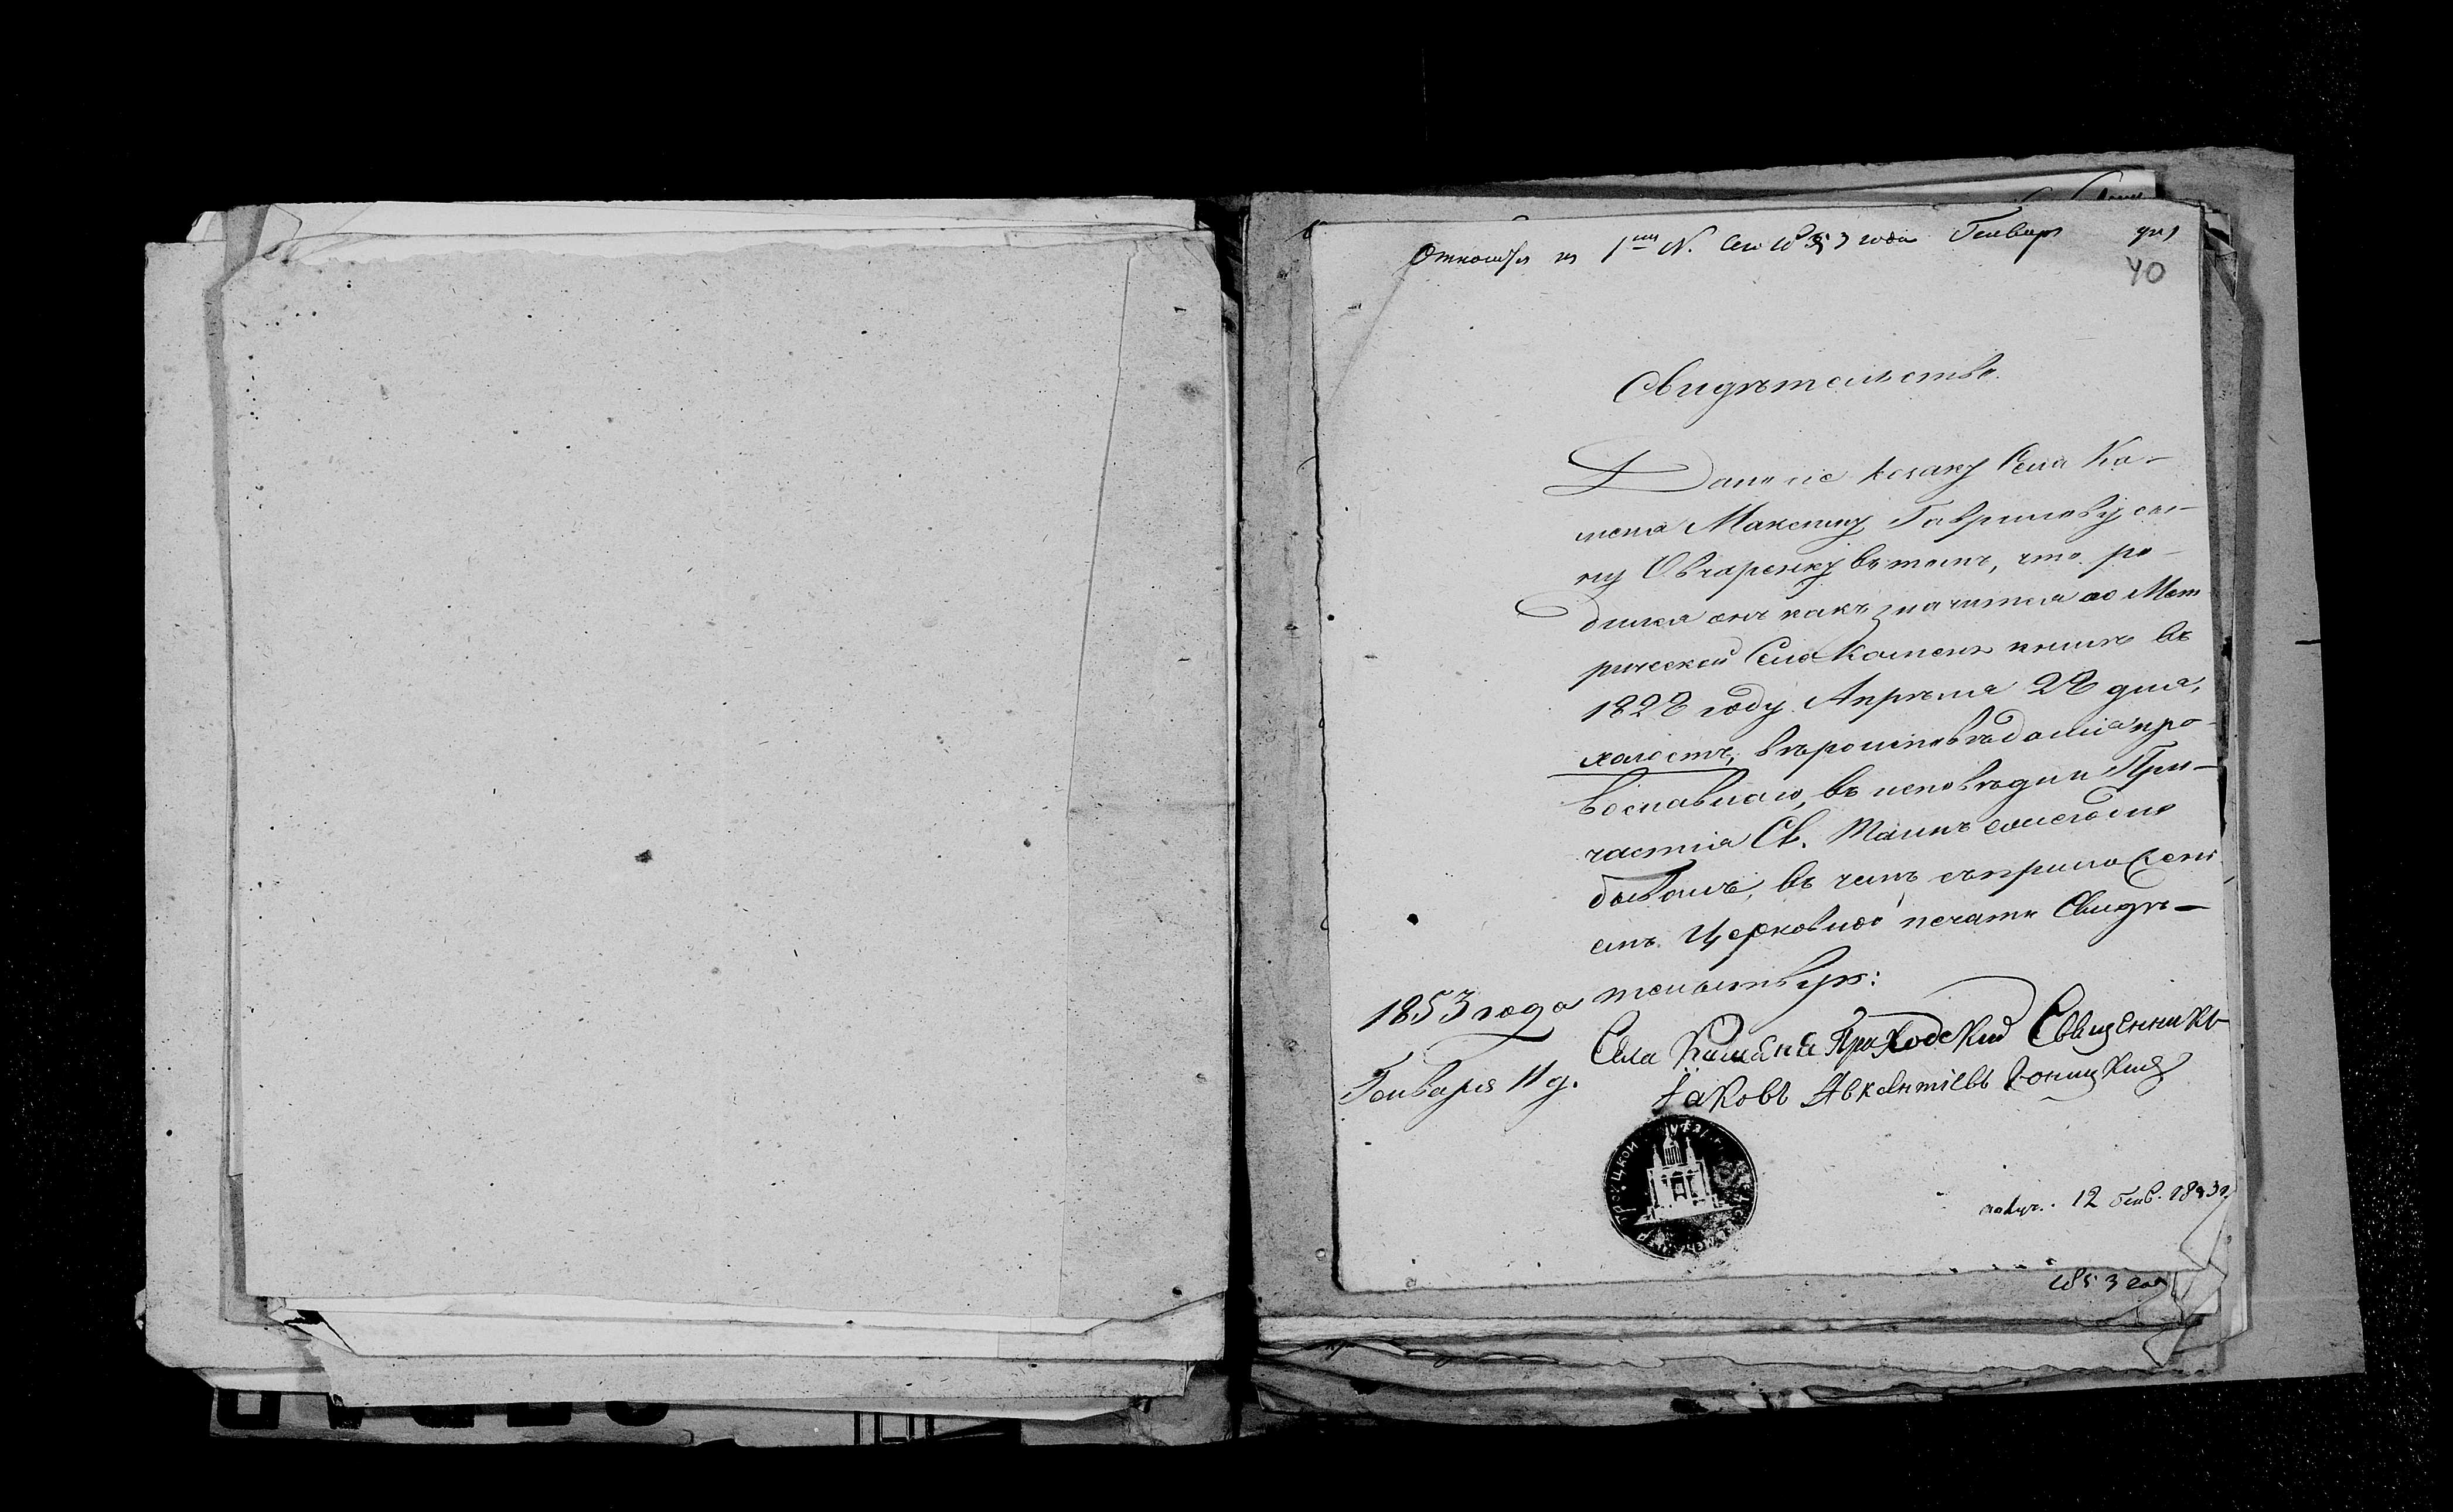 Относится къ 1му N. сего 1853 года Генваря дня
40
Свидѣтельство.
Дано сіе козаку Села Ка-
меня Максиму Гаврилову сы-
ну Овчаренку въ томъ, что ро-
дился онъ какъ значится по Мет
рической Села Каменя книгѣ въ
1828 году Апрѣля 28 дня,
холостъ, вѣроисповѣданія пра-
вославнаго, въ исповѣди и При-
частія Св. Таинъ ежегодно
бываетъ, въ чемъ съ приложені
емъ Церковной печати Свидѣ-
тельствую:
1853 года
Генваря 11 д.
Села Каменя Приходскій Священникъ
Іаковъ Авксентіевъ
ТРОИЦКОЙ
получ. 12 Генв. 1853 г
1853 года